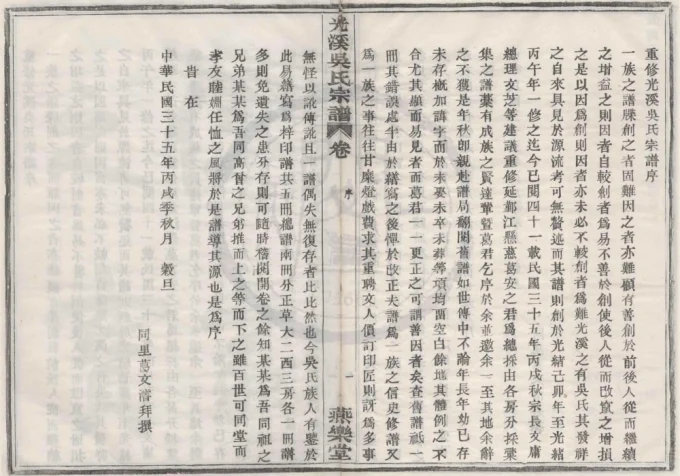 重修光溪吳氏宗譜序
一族之譜牒創之者固難因之者亦難顧有善創於前後人從而繼續
之增益之則因者自較創者為易不善於創使後人從而改竄之增損
之是以因為創則因者亦未必不較創者為難光溪之有吳氏其發祥
之自來具見於源流考可無贅述而其譜則創於光緒己卯年至光緒
丙午年一修之迄今已閱四十一載民國三十五年丙戌秋宗長文庸
總理文芝等建議重修延鄞江懸慈葛安之君為總採由各房分採彙
集之譜藁有成族之賢達輩暨葛君乞序於余並邀余一至其地余辭
之不獲是年秋卽親赴譜局翻閱舊譜如世傳中不論年長年幼已存
未存概加諱字而於未娶未卒未葬等項均留空白餘地其體例之不
合尤其顯而易見者而葛君一一更正之可謂善因者矣查舊譜祗一
冊其錯誤處半由於繕寫之後憚於改正夫譜為一族之信史修譜又
為一族之事往往甘糜燈戲費求其重聘文人價訂印匠則訝為多事
光溪吳氏宗譜
卷
序
一
燕樂堂
無怪以訛傳訛且一譜偶失無復存者比比然也今吳氏族人有鑒於
此易繕寫為梓印譜共五冊總譜兩冊分正草大二西三房各一冊譜
多則免遺失之患分存則可隨時繙閱開卷之餘知某某為吾同祖之
兄弟某某為吾同高曾之兄弟推而上之等而下之雖百世可同堂而
孝友睦婣任恤之風將於是譜導其源也是為序
旹在
中華民國三十五年丙戌季秋月 穀旦
同里葛文濬拜撰